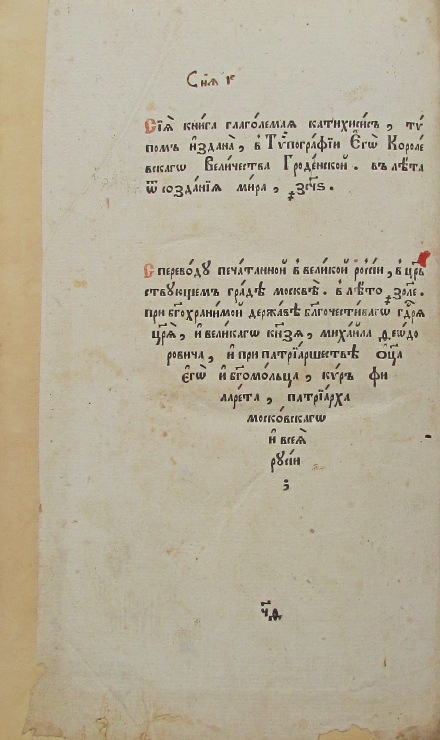 Сиѧ к
Сїѧ̀ кни́га глаго́лемаѧ катихи́сисъ , тѵ́
помъ и҆́здана , в Тѷпогра́фїи Є҆гѡ̀ Короле́
вскагѡ Вели́чества Гроде́нской . въ лѣ́та
ѿ созда́нїѧ мира , ҂зсч҃ѕ .
С перево́ду печа́танной в вели́кой ро́ссїи , в црⷭ҇
ствующемъ гра́дѣ москвѣ̀ . в лѣ́то ҂зрл҃е .
при бг҃охрани́мой держа́вѣ бл҃гочести́вагѡ гдⷭ҇рѧ
цр҃ѧ̀ , и҆ вели́кагѡ кн҃зѧ , миха́ила ѳео́до
ровича , и҆ при патрїа́ршествѣ ѻ҆ц҃а̀
є҆гѡ̀ и҆ бг҃омо́льца , кѵ́ръ фи
ларе́та , патрїа́рха
моско́вскагѡ
и҆ всеѧ̀
руси́и
;
ч҃ѳ